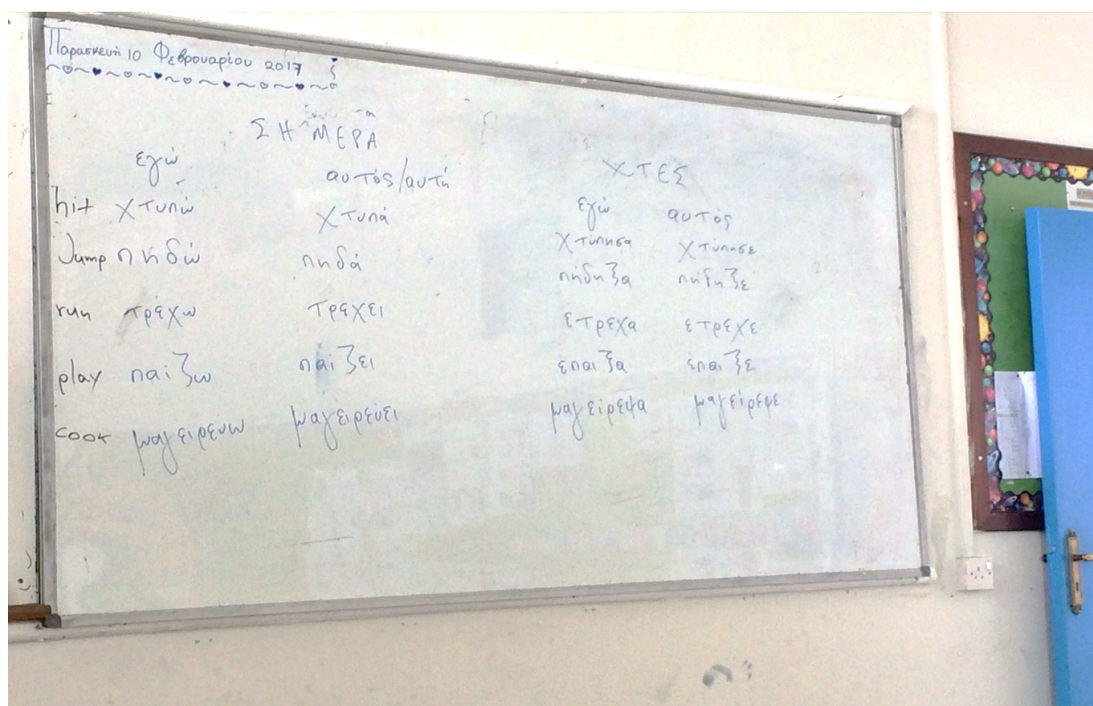 Παρασκευή 10 Φεβρουαρίου 2017
ΣΗΜΕΡΑ
ΧΤΕΣ
εγώ αυτός/αυτή εγώ αυτός
hit χτυπώ χτυπά χτύπησα χτύπησε
Jump πηδώ πηδά πήδηξα πήδηξε
run τρέχω τρέχει έτρεχα έτρεχε
play παίζω παίζει έπαιξα έπαιξε
cook μαγειρευω μαγειρεύει μαγείρεψα μαγείρεψε